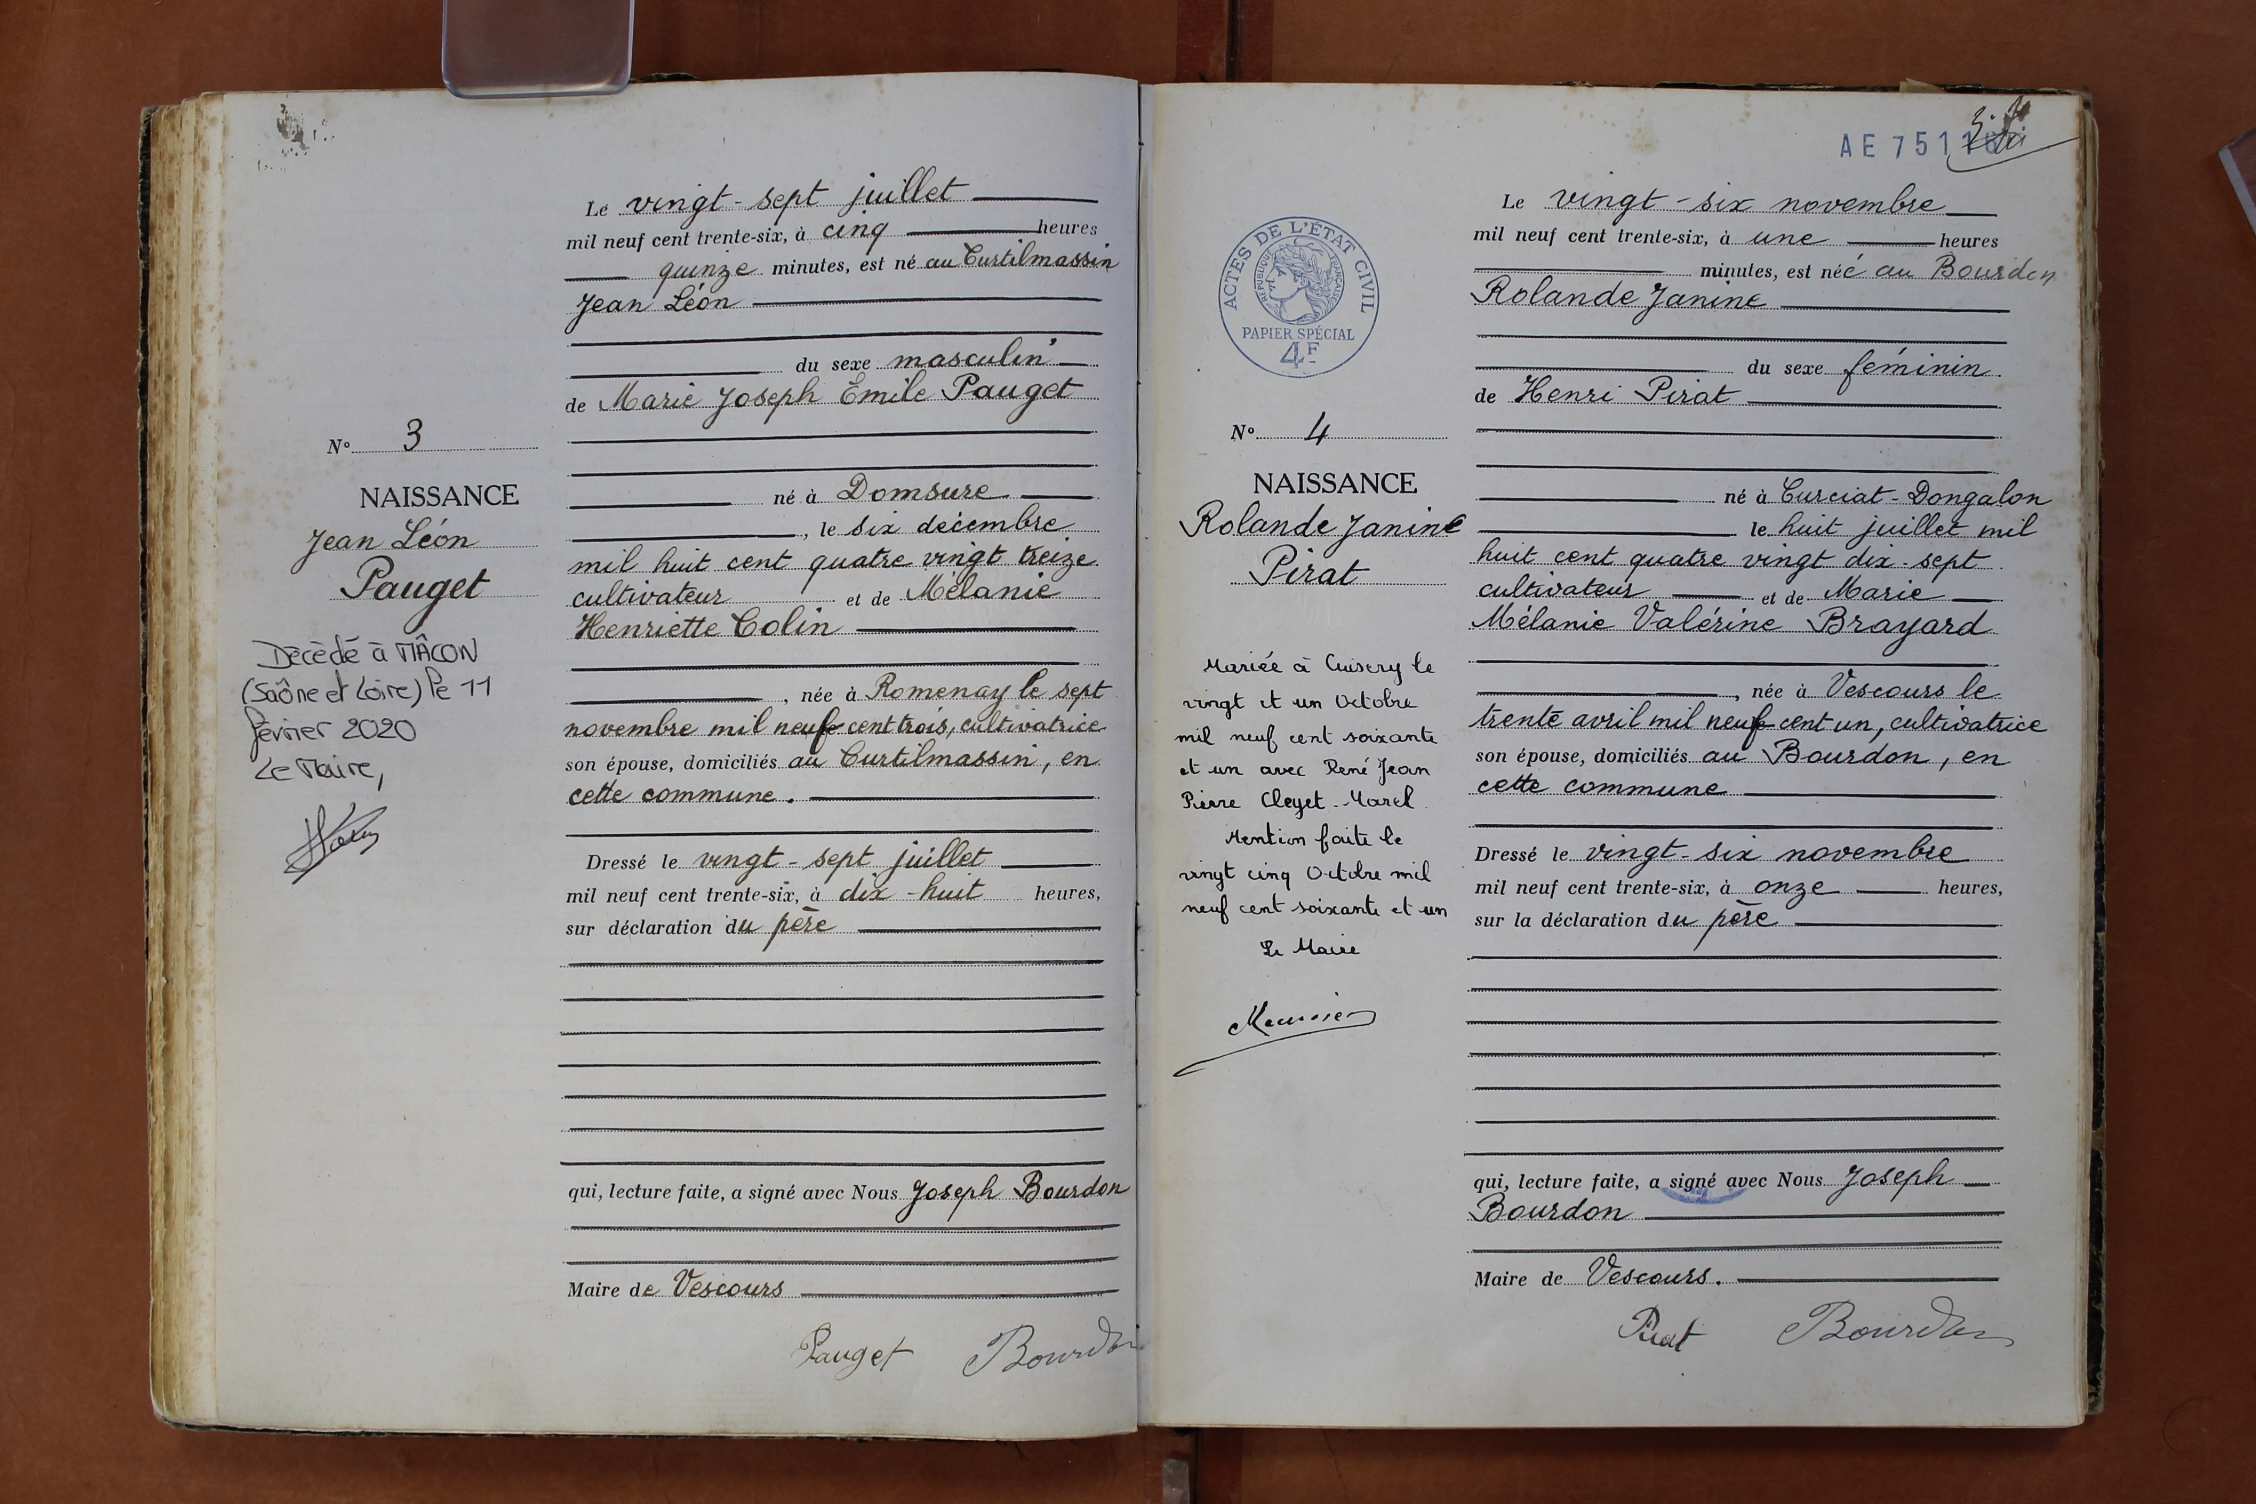 Le vingt-sept juillet
mil neuf cent trente-six, à cinq heures
quinze minutes, est né au Curtilmassin
Jean Léon
du sexe masculin
de Marie Joseph Emile Pauget
né à Domsure
, le six décembre
mil huit cent quatre vingt treize
cultivateur et de Mélanie
Henriette Colin
, née à Romenay le sept
novembre mil neuf cent trois, cultivatrice
son épouse, domiciliés au Curtilmassin, en
cette commune.
Dressé le vingt-sept juillet
mil neuf cent trente-six, à dix-huit heures,
sur déclaration du père
qui, lecture faite, a signé avec Nous Joseph Bourdon
Maire de Vescours
Pauget Bourdon
N° 3
NAISSANCE
Jean Léon
Pauget
Décédé à MÂCON
(Saône et Loire) le 11
février 2020
Le Maire,
AE 751
Le vingt-six novembre
mil neuf cent trente-six, à une heures
minutes, est née au Bourdon
Rolande Janine
du sexe féminin
de Henri Pirat
né à Curciat-Dongalon
le huit juillet mil
huit cent quatre vingt dix-sept
cultivateur et de Marie
Mélanie Valérine Brayard
, née à Vescours le
trente avril mil neuf cent un, cultivatrice
son épouse, domiciliés au Bourdon, en
cette commune
Dressé le vingt-six novembre
mil neuf cent trente-six, à onze heures,
sur la déclaration du père
qui, lecture faite, a signé avec Nous Joseph
Bourdon
Maire de Vescours.
Pirat Bourdon
ACTES DE L'ÉTAT CIVIL
RÉPUBLIQUE FRANÇAISE
PAPIER SPÉCIAL
4F
N° 4
NAISSANCE
Rolande Janine
Pirat
Mariée à Cuisery le
vingt et un Octobre
mil neuf cent soixante
et un avec René Jean
Pierre Cleyet-Marel
Mention faite le
vingt cinq Octobre mil
neuf cent soixante et un
Le Maire
Meunier